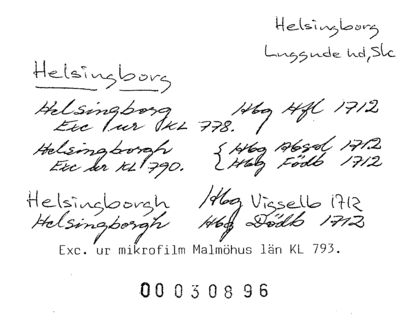 Helsingborg
Luggude hd, Sk
Helsingborg
Helsingborg Hbg Hfl 1712
Exc ur KL 778.
Helsingborgh { Hbg Absol 1712
Exc ur KL 790. { Hbg Födb 1712
Helsingborgh Hbg Vigselb 1712
Helsingborgh Hbg Dödb 1712
Exc. ur mikrofilm Malmöhus län KL 793.
00030896